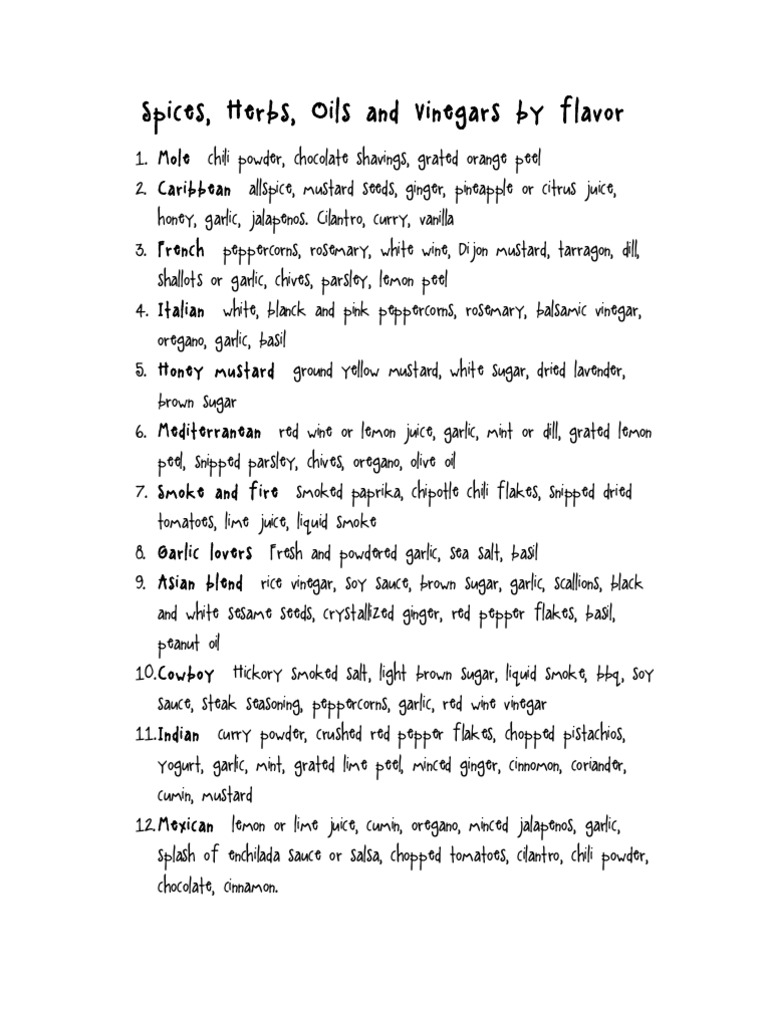 Spices, Herbs, Oils and Vinegars by flavor
1. Mole chili powder, chocolate shavings, grated orange peel
2. Caribbean allspice, mustard seeds, ginger, pineapple or citrus juice,
honey, garlic, jalapenos. Cilantro, curry, vanilla
3. French peppercorns, rosemary, white wine, Dijon mustard, tarragon, dill,
shallots or garlic, chives, parsley, lemon peel
4. Italian white, blanck and pink peppercorns, rosemary, balsamic vinegar,
oregano, garlic, basil
5. Honey mustard ground yellow mustard, white sugar, dried lavender,
brown sugar
6. Mediterranean red wine or lemon juice, garlic, mint or dill, grated lemon
peel, snipped parsley, chives, oregano, olive oil
7. Smoke and fire smoked paprika, chipotle chili flakes, snipped dried
tomatoes, lime juice, liquid smoke
8. Garlic lovers Fresh and powdered garlic, sea salt, basil
9. Asian blend rice vinegar, soy sauce, brown sugar, garlic, scallions, black
and white sesame seeds, crystallized ginger, red pepper flakes, basil,
peanut oil
10.Cowboy Hickory smoked salt, light brown sugar, liquid smoke, bbq, soy
sauce, steak seasoning, peppercorns, garlic, red wine vinegar
11.Indian curry powder, crushed red pepper flakes, chopped pistachios,
yogurt, garlic, mint, grated lime peel, minced ginger, cinnomon, coriander,
cumin, mustard
12.Mexican lemon or lime juice, cumin, oregano, minced jalapenos, garlic,
splash of enchilada sauce or salsa, chopped tomatoes, cilantro, chili powder,
chocolate, cinnamon.